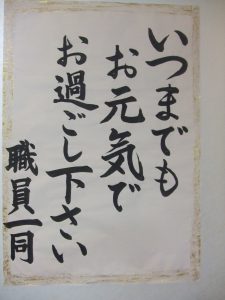 いつまでも
お元気で
お過ごし下さい
職員一同